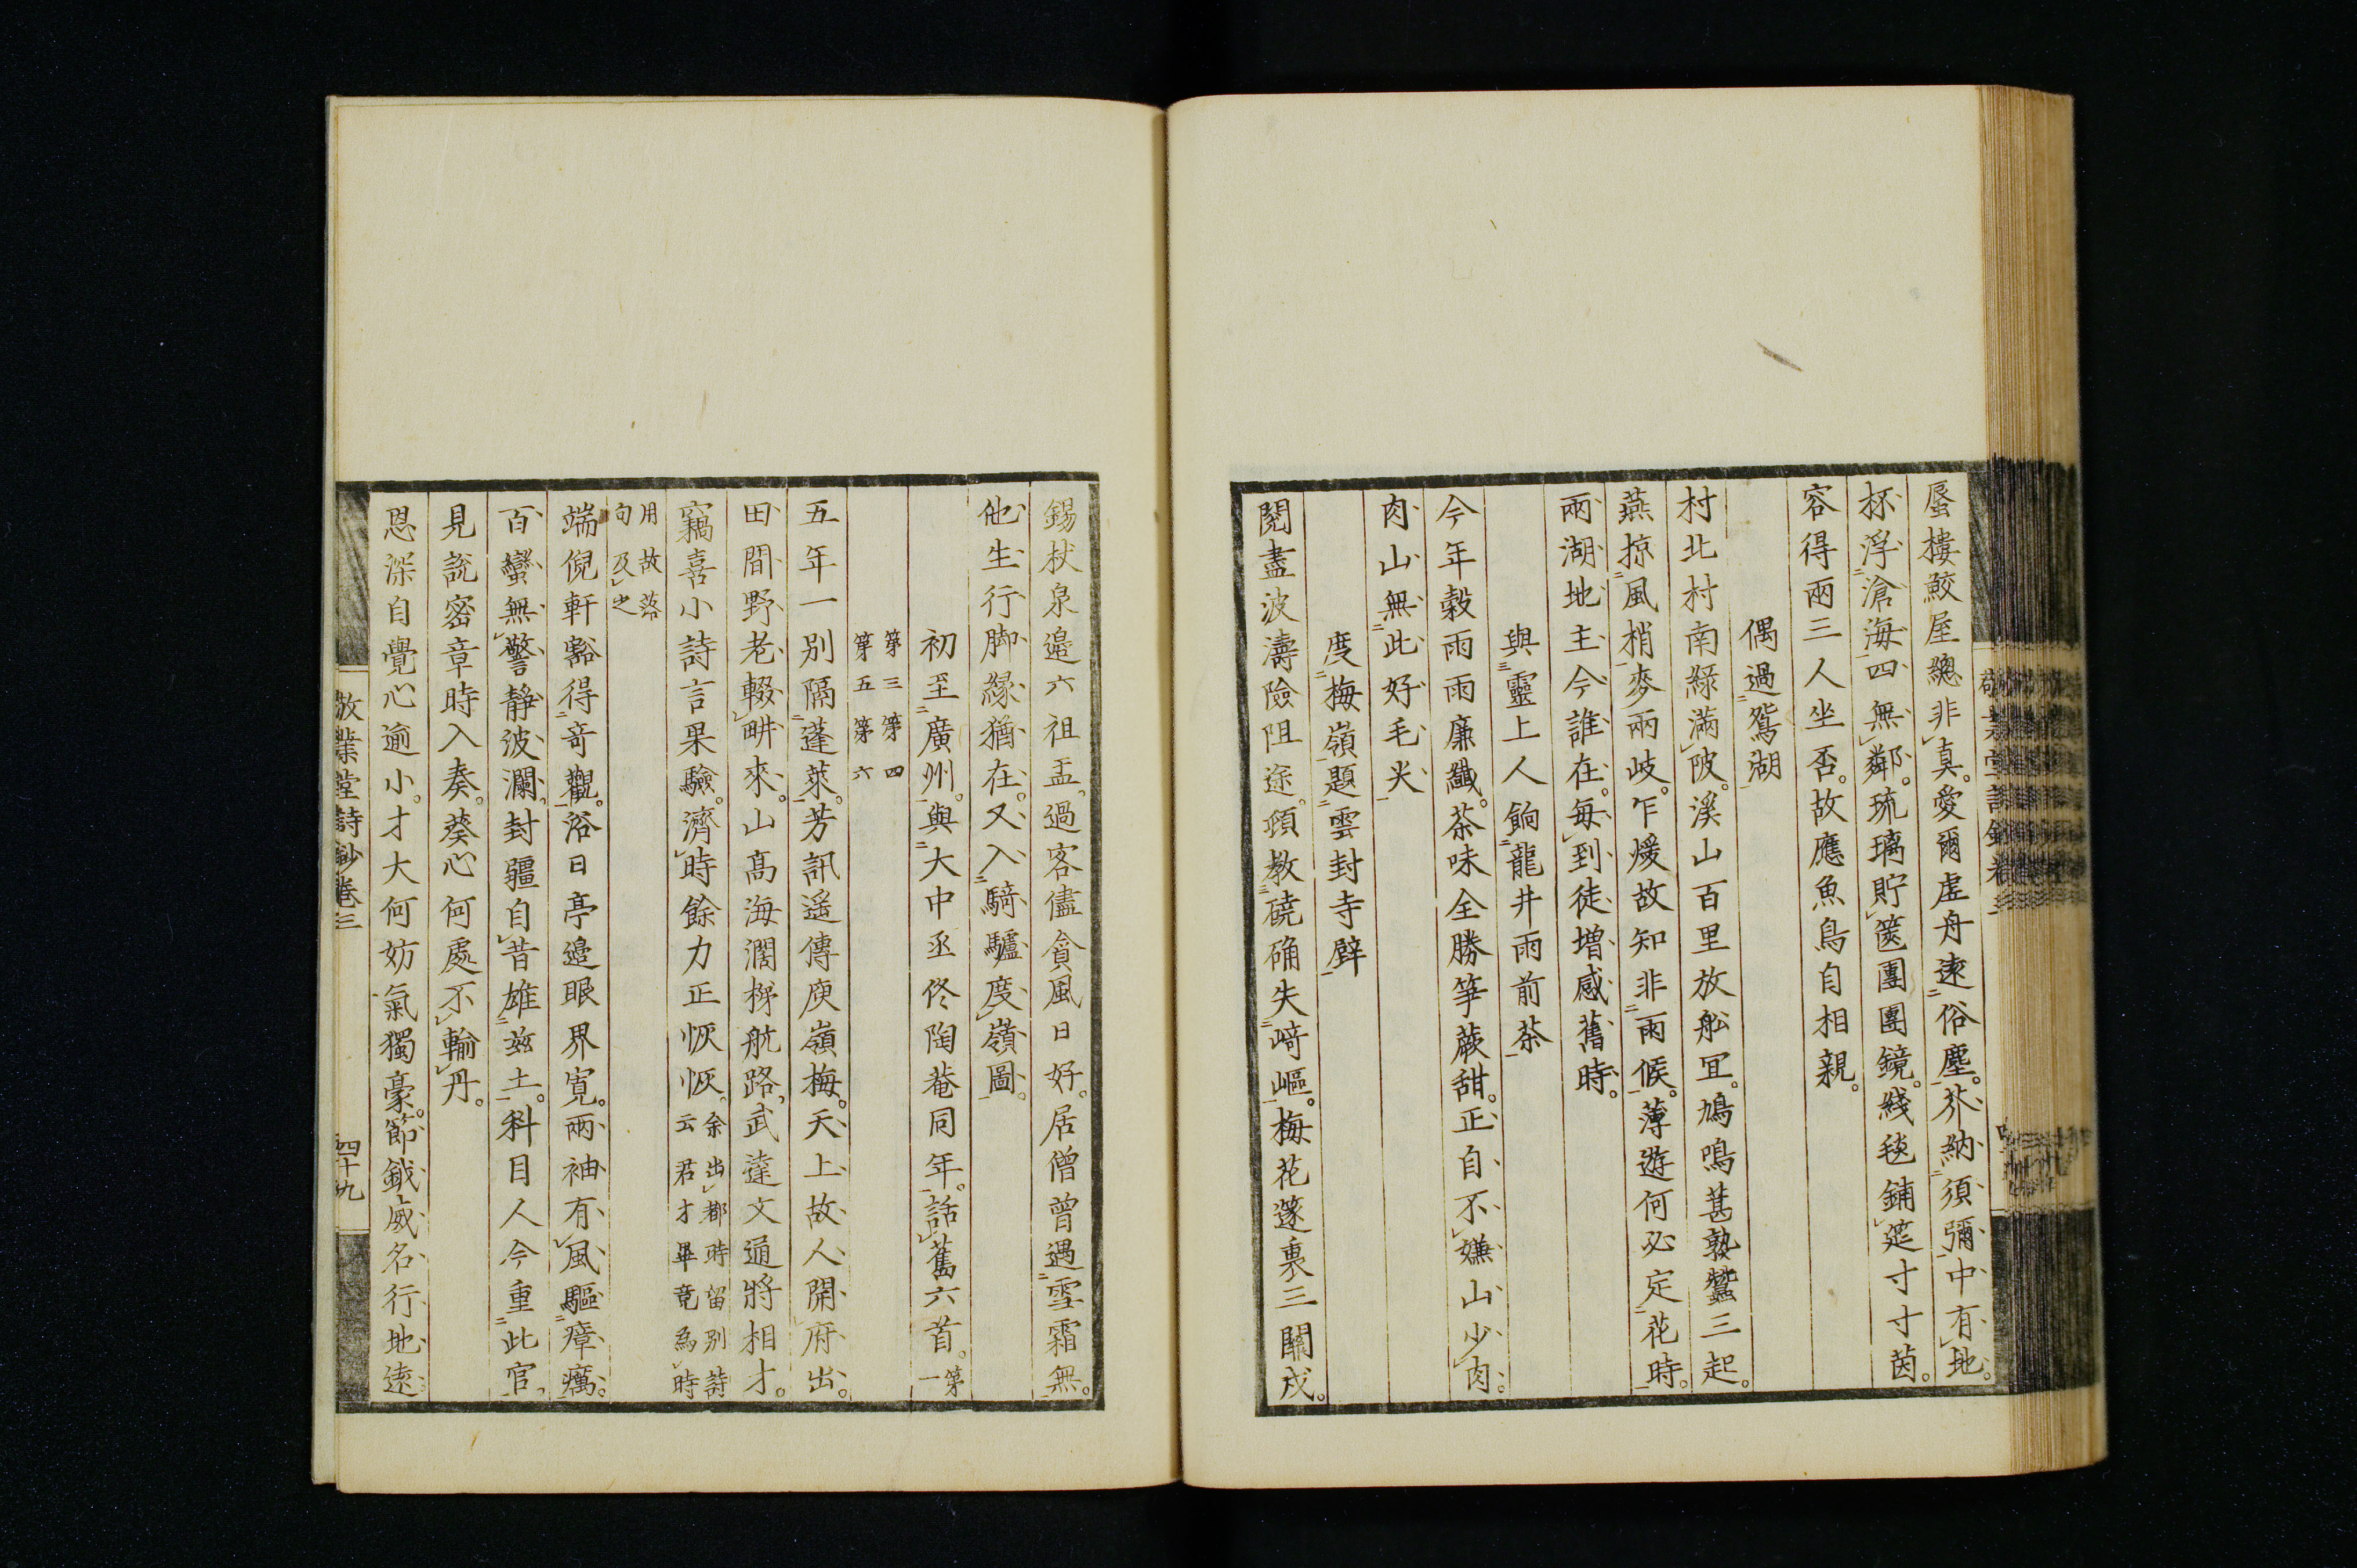 蜃樓鮫屋總非真。愛爾虚舟遠俗塵。芥納須彌中有地。
杯浮滄海四無鄰。琉璃貯篋團團鏡。綫毯鋪筵寸寸茵。
容得兩三人坐否。故應魚鳥自相親。
偶過鴛湖
村北村南綠滿陂。溪山百里放船宜。鳩鳴葚熟蠶三起。
燕掠風梢麥兩岐。乍煖故知非雨候。薄遊何必定花時。
兩湖地主今誰在。每到徒增感舊時。
與靈上人餉龍井雨前茶
今年穀雨雨廉纖。茶味全勝筍蕨甜。正自不嫌山少肉。
肉山無此好毛尖
度梅嶺題雲封寺壁
閱盡波濤險阻途。頭教磽确失﨑嶇。梅花邃裏三關戍。
錫杖泉邊六祖盂。過客儘貪風日好。居僧曾遇雪霜無。
他生行脚緣猶在。又入騎驢度嶺圖。
初至廣州。與大中丞佟陶菴同年。話舊六首。第一
第三第四
第五第六
五年一別隔蓬萊。芳訊遥傳庾嶺梅。天上故人開府出。
田間野老輟畊來。山高海濶梯航路。武達文通將相才。
竊喜小詩言果驗。濟時餘力正恢恢。余出都時留別詩
云君才畢竟爲時
用故落
句及之
端倪軒豁得奇觀。浴日亭邊眼界寬。兩袖有風驅瘴癘。
百蠻無警靜波瀾。封疆自昔雄茲土。科目人今重此官。
見説密章時入奏。葵心何處不輸丹。
恩深自覺心逾小。才大何妨氣獨豪。節鉞威名行地遠
敬業堂詩鈔卷三
四十九